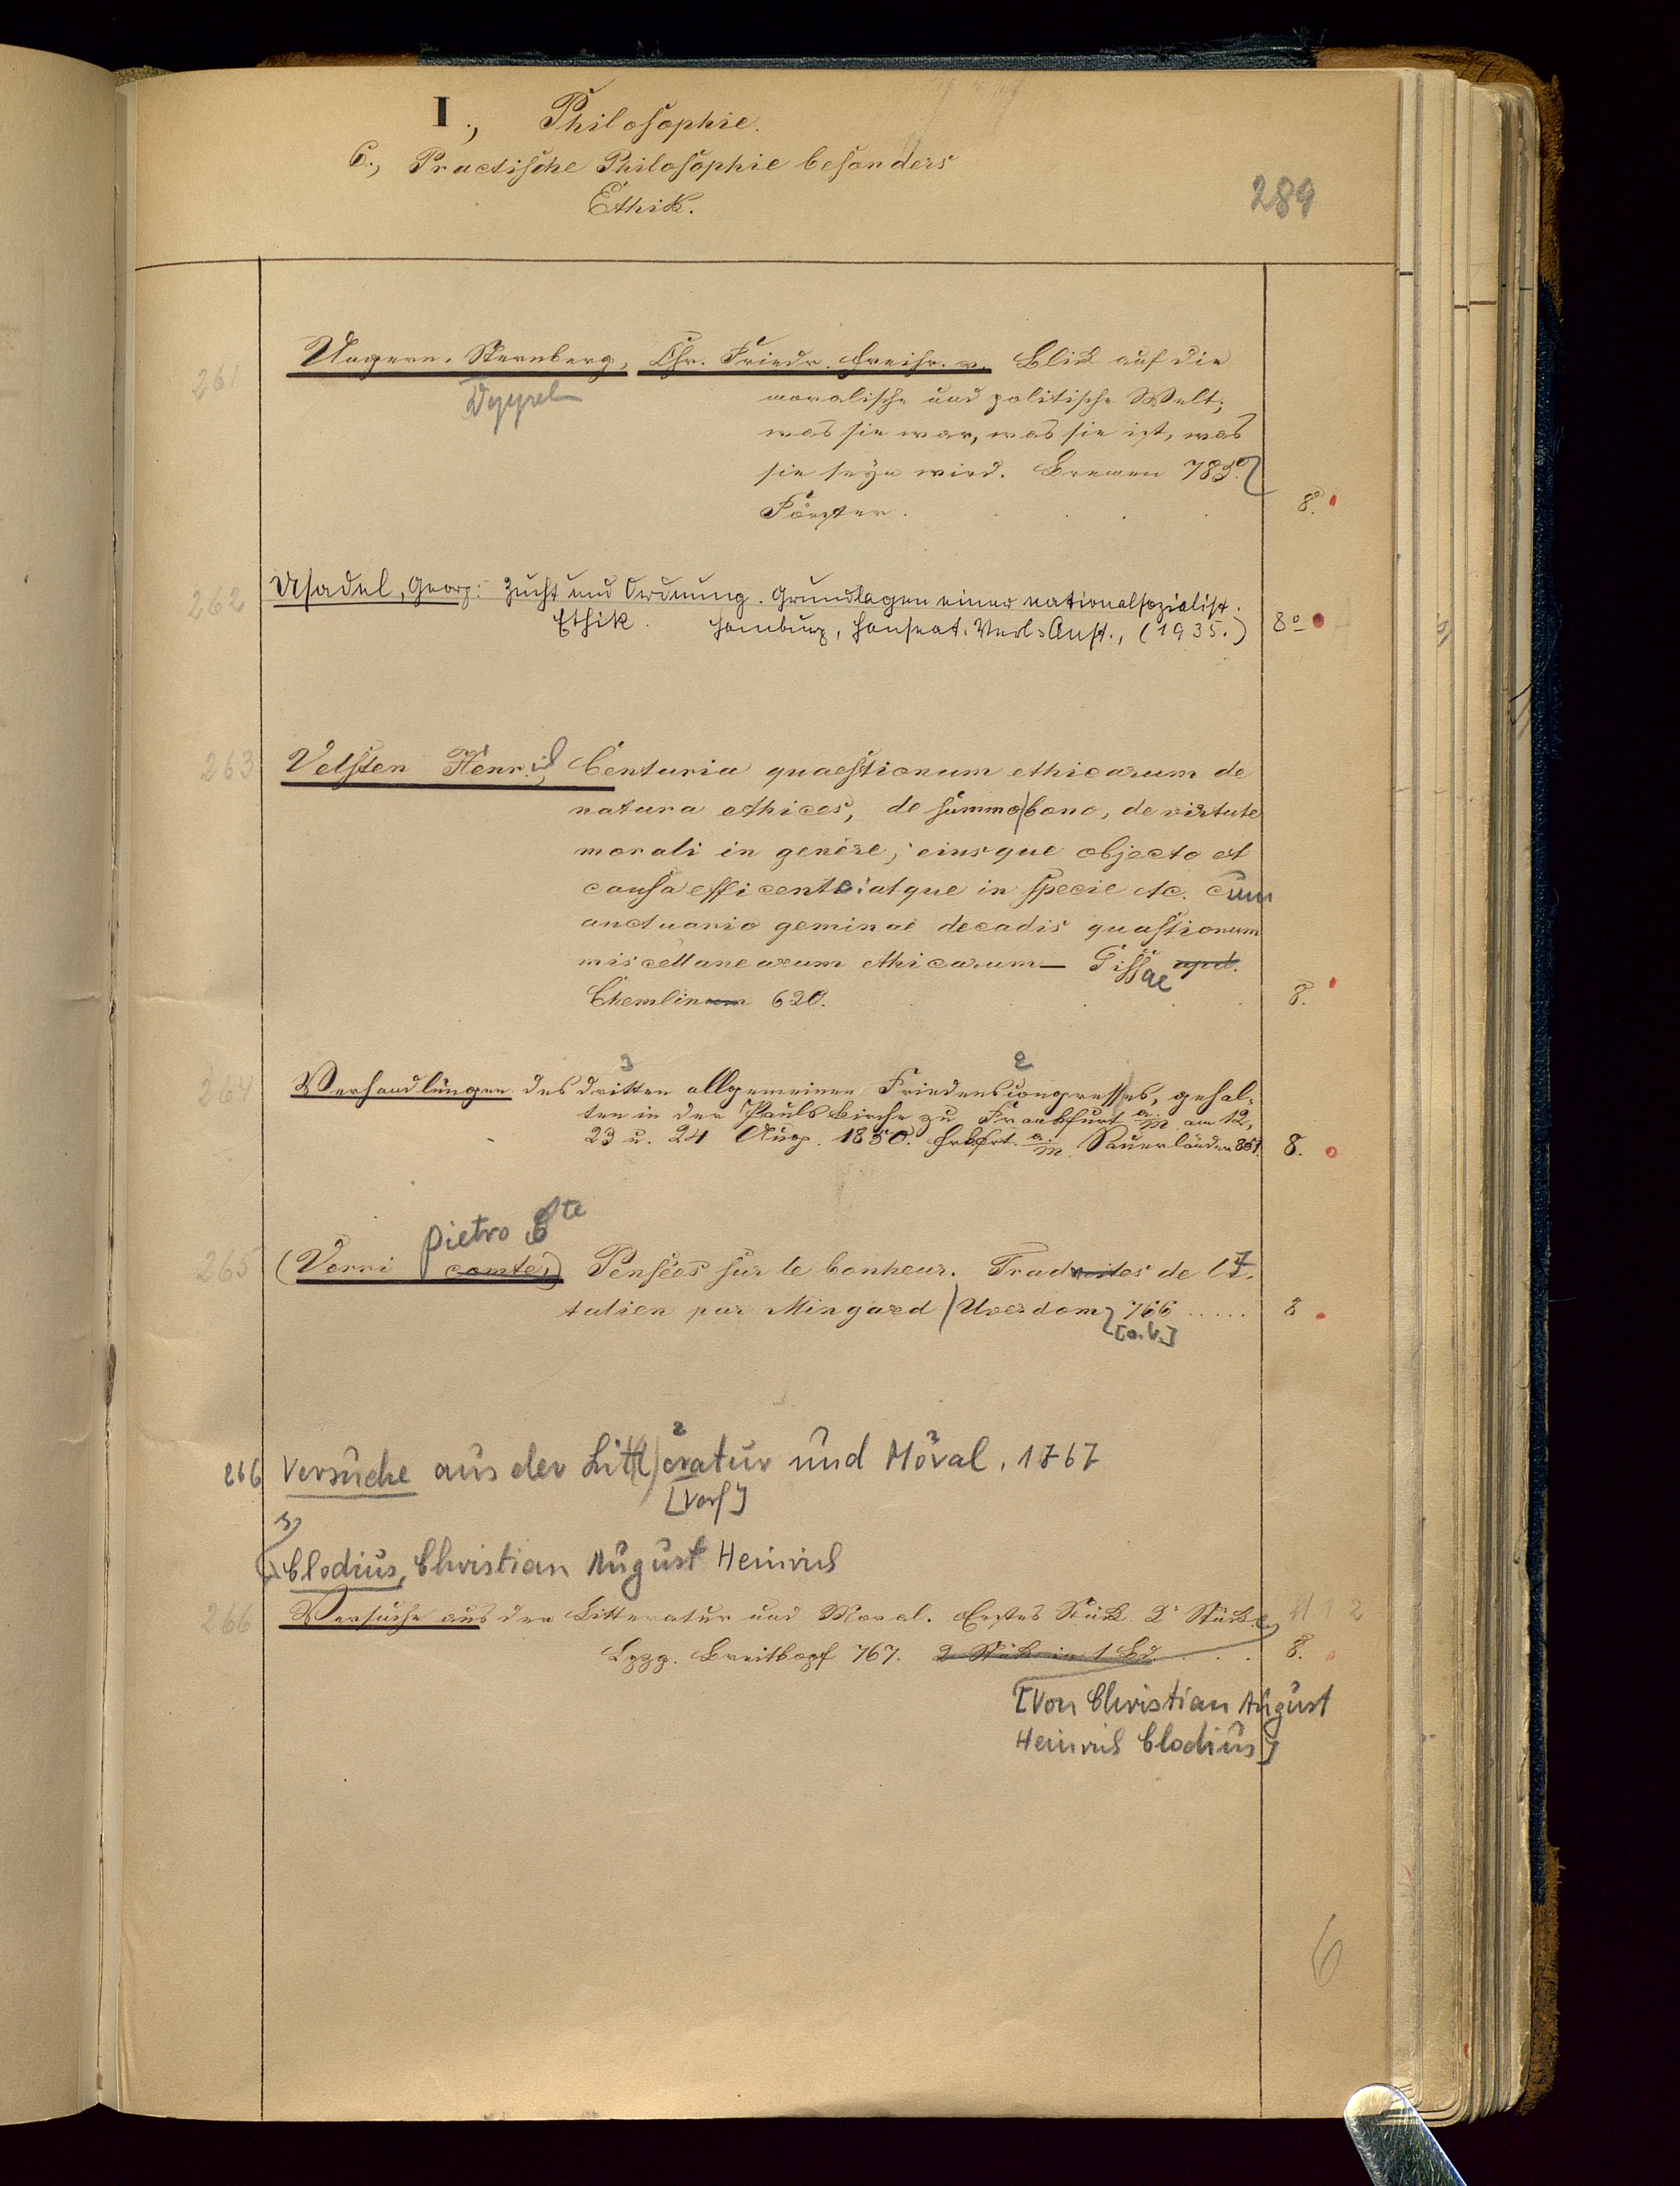 I., Philosophie.
6., Practische Philosophie besonders
Ethik.
289
261
Ungern-Sternberg, Chr. Friedr. Freihr. v. Blick auf die
moralische und politische Welt;
was sie war, was sie ist, was
sie seyn wird. Bremen 785.
Förster. 8.
262 Usadel, Georg: Zucht und Ordnung. Grundlagen einer nationalsozialist.
Ethik. Hamburg, Hanseat. Verl.-Anst., (1935.) 8o
263 Velsten Henric, Centuria quaestionum ethicarum de
natura ethices, de summo bono, de virtute
morali in genere, eiusque objecto et
causa efficente: atque in specie etc. cum
auctuario geminae decadis quastionum
miscellanearum ethicarum — Gissae apud.
Chemlinum 620. 8.
3 2
264 Verhandlungen des dritten allgemeinen Friedenscongresses, gehal-
ten in der Paulskirche zu Frankfurt a. M. am 12,
23 u. 24 Aug. 1850. Frkfrt. a. M. Sauerländer 851. 8.
pietro
265 (Verri comte,) Pensées sur le bonheur. Traduites de l'I-
talien par Mingard Uverdom 766 ..... 8
[o.V.]
266 Versuche aus der Litteratur und Moral. 1767
[Verf]
Clodius, Christian August Heinrich
266 Versuche aus der Litteratur und Moral. Erstes Stück 2s Stück. St. 1 2
Lpzg. Breitkopf 767. 2 Stück in 1 Bd. 8.
[Von Christian August
Heinrich Clodius]
6